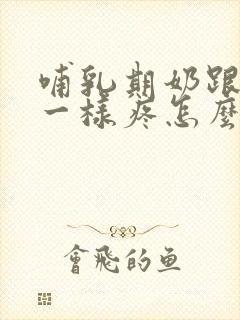 哺乳期奶跟
一樣疼怎麼
會飛的鱼